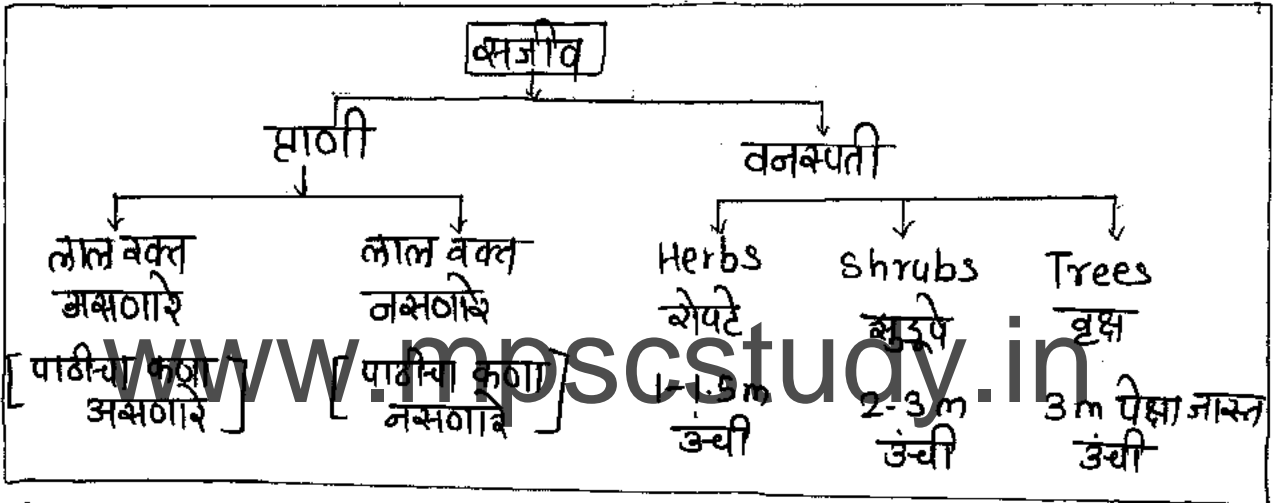 सजीव
प्राणी
वनस्पती
लाल रक्त
असणारे
[पाठीचा कणा
असणारे]
लाल रक्त
नसणारे
[पाठीचा कणा
नसणारे]
Herbs
रोपटे
1-1.5 m
उंची
Shrubs
झुडूपे
2-3 m
उंची
Trees
वृक्ष
3 m पेक्षा जास्त
उंची
www.mpscstudy.in